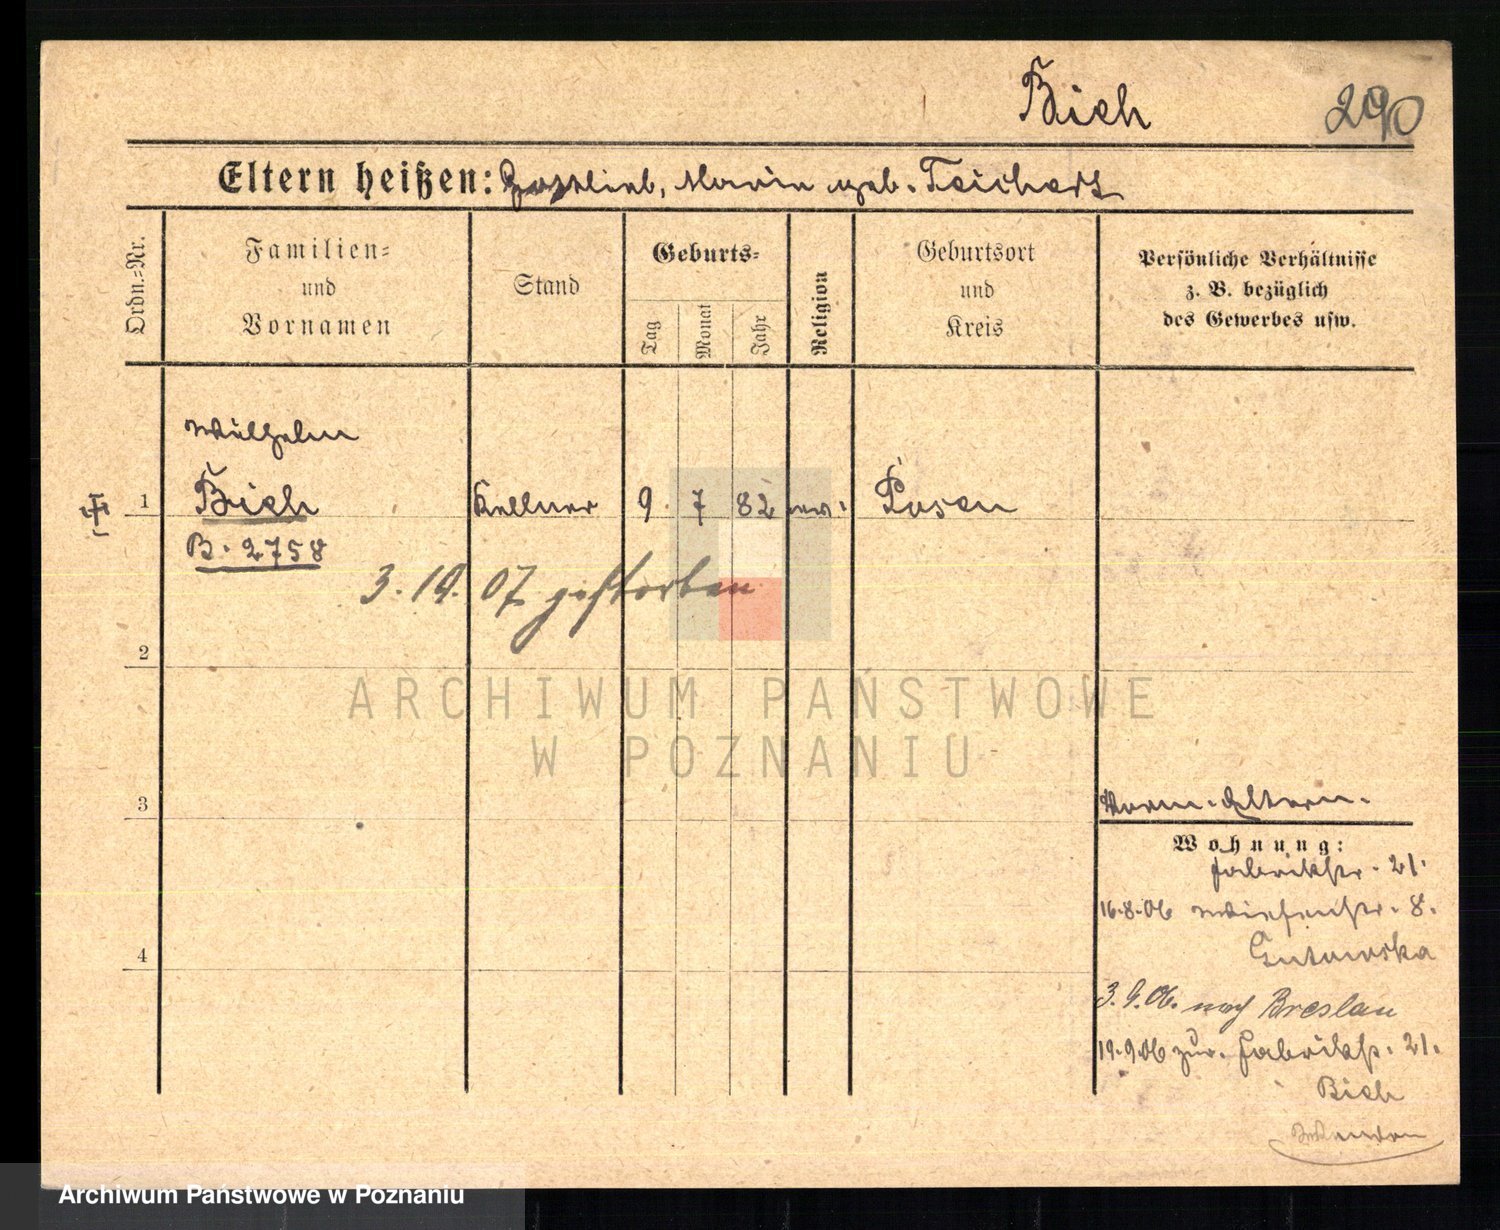 Bich 290
Eltern heißen: Gottlieb, Maria geb. Teichert
Ordn.-Nr.
Familien-
und
Vornamen
Stand
Geburts-
Tag
Monat
Jahr
Religion
Geburtsort
und
Kreis
Persönliche Verhältnisse
z. B. bezüglich
des Gewerbes usw.
Wilhelm
1 Bich Kellner 9. 7 82 ev. Posen
B. 2758
3. 10. 07 gestorben
2
ARCHIWUM PAŃSTWOWE
W POZNANIU
3
Eltern.
Wohnung:
Fabrikstr. 21.
16.8.06 Wiesenstr. 8.
Gutowska
4
3.9.06. nach Breslau
19.9.06 zur. Fabrikstr. 21.
Bich
Archiwum Państwowe w Poznaniu